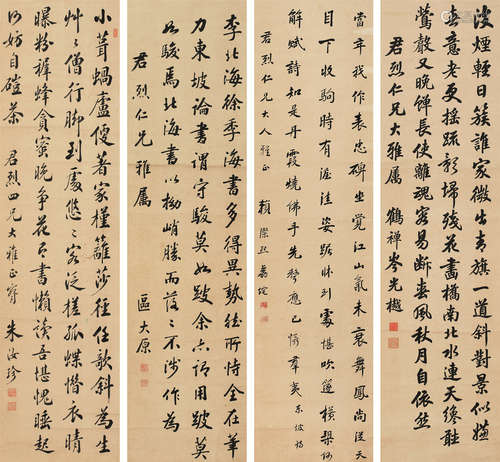 淡煙輕日簇誰家微出青旗一道斜對景似嫌
春意老更搖疏影掃殘花畫橋南北水連天纔聽
鶯聲又晚蟬長使離魂容易斷春風秋月自依然
君烈仁兄大雅屬 鶴禪岑光樾
當年我作表忠碑坐覺江山氣未衰舞鳳尚從天
目下收駒時有渥洼姿踞床到處堪吹笛橫槊何
解賦詩知是丹霞燒佛手先聲應已懾羣夷 東坡詩
君烈仁兄大人雅正 賴際熙
李北海徐季海書多得異勢然所恃全在筆
力東坡論書謂守駿莫如跛余亦謂用跛莫
如駿焉北海書以拗峭勝而落落不涉作為
君烈仁兄雅屬 區大原
小葺蝸廬便著家槿籬莎徑任欹斜為生
艸艸僧行腳到處悠悠客泛槎孤蝶惜衣晴
曝粉稚蜂貪蜜晚爭花書懶讀吾堪愧睡起
何妨自磑茶 君烈四兄大雅正 朱汝珍